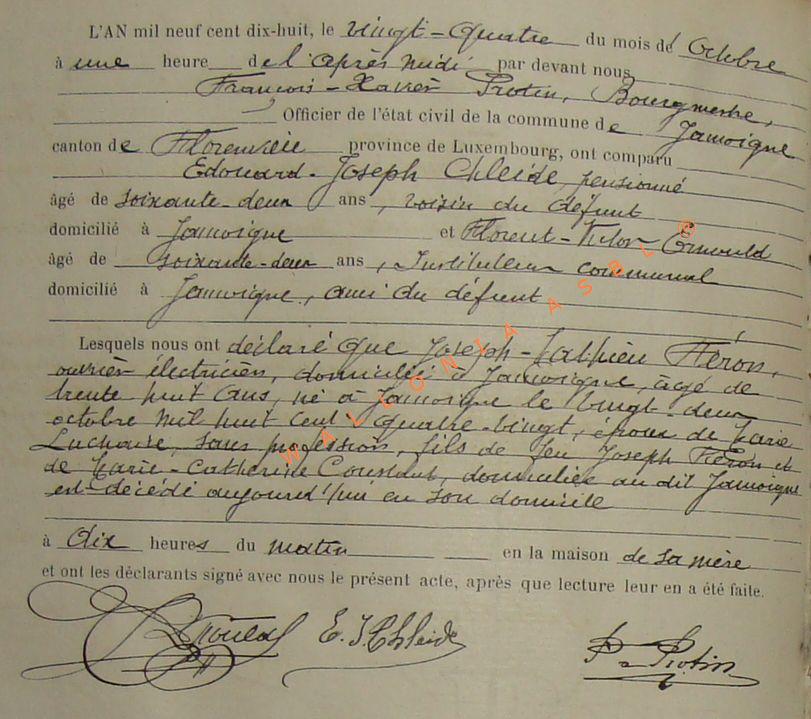 L'AN mil neuf cent dix-huit, le vingt-quatre du mois de Octobre
à une heure de l'après midi par devant nous
François-Xavier Protin, Bourgmestre,
Officier de l'état civil de la commune de Jamoigne
canton de Florenville province de Luxembourg, ont comparu
Edouard-Joseph Chleide, pensionné
âgé de soixante-deux ans, voisin du défunt
domicilié à Jamoigne et Florent-Victor Arnould
âgé de soixante-deux ans, Instituteur communal
domicilié à Jamoigne, ami du défunt
Lesquels nous ont déclaré que Joseph-Mathieu Féron,
ouvrier électricien, domicilié à Jamoigne, âgé de
trente huit ans, né à Jamoigne le vingt-deux
octobre mil huit cent quatre-vingt, époux de Marie
sans profession, fils de feu Joseph Féron et
de Marie-Catherine Constant, domiciliée au dit Jamoigne
est décédé aujourd'hui en son domicile
à dix heures du matin en la maison de sa mère
et ont les déclarants signé avec nous le présent acte, après que lecture leur en a été faite.
Arnould E. J. Chleide Protin
WALLONIA ASBL ©